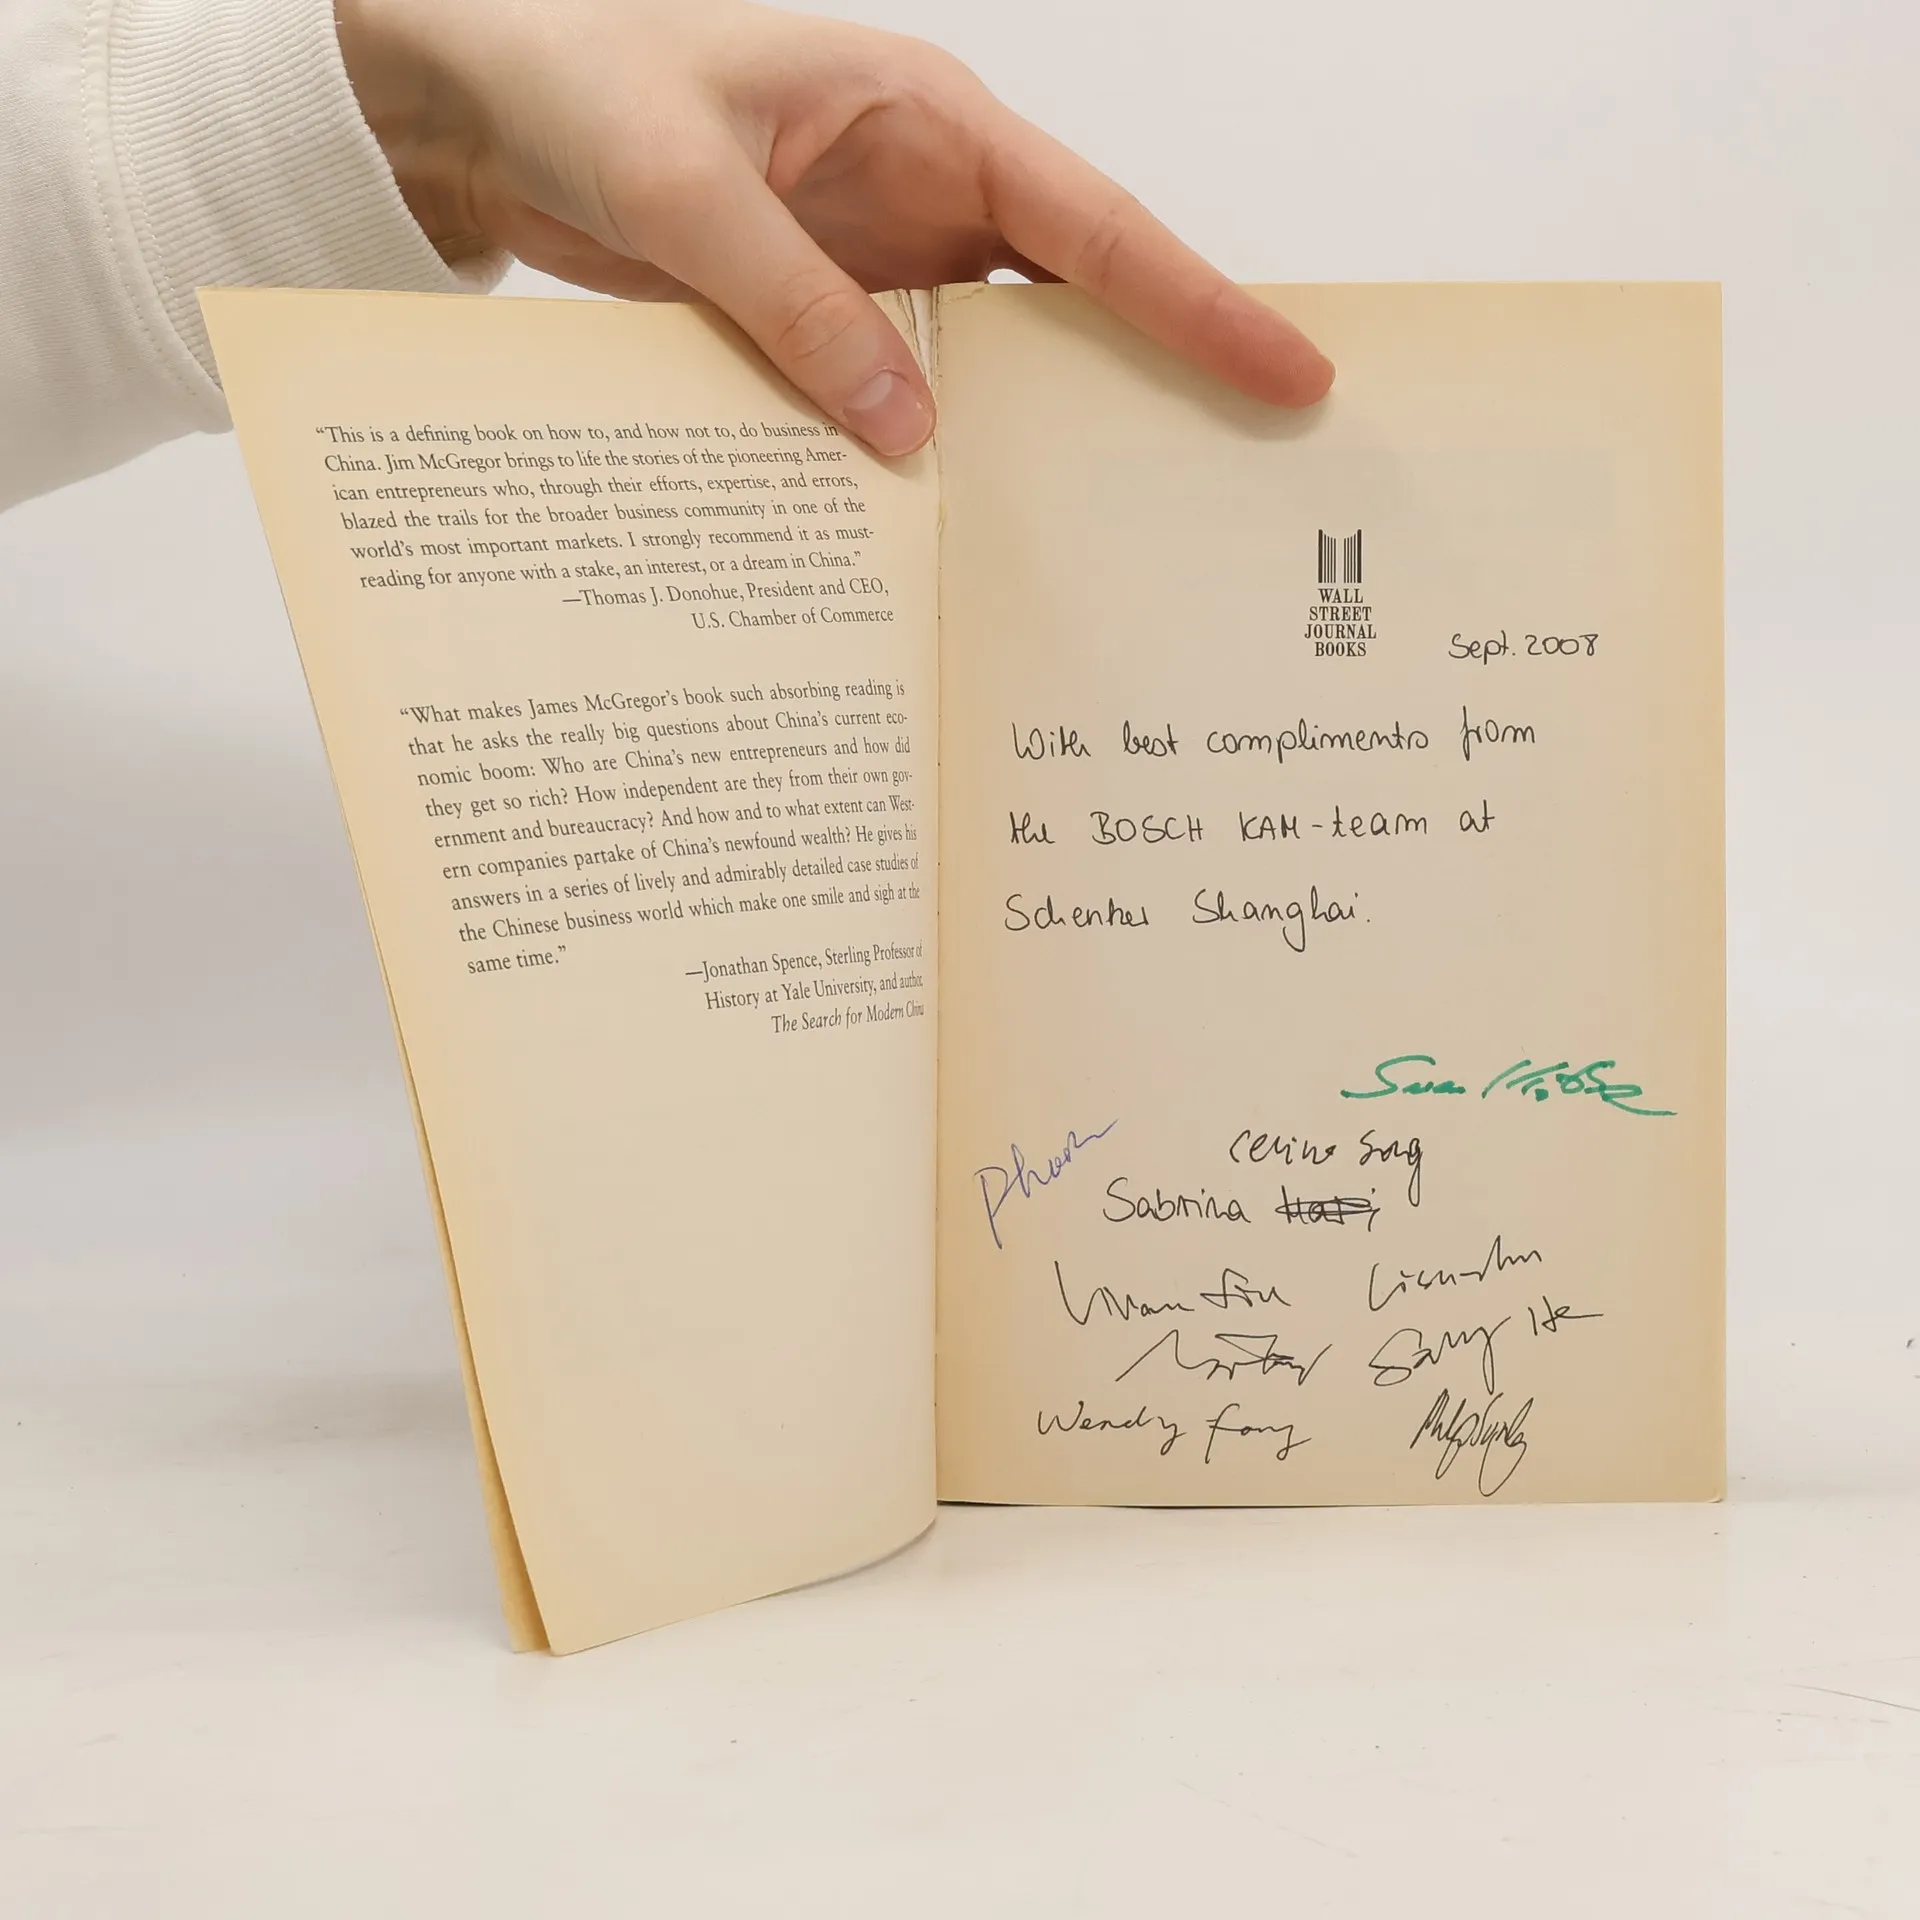 “This is a defining book on how to, and how not to, do business in
China. Jim McGregor brings to life the stories of the pioneering Amer-
ican entrepreneurs who, through their efforts, expertise, and errors,
blazed the trails for the broader business community in one of the
world’s most important markets. I strongly recommend it as must-
reading for anyone with a stake, an interest, or a dream in China.”
—Thomas J. Donohue, President and CEO,
U.S. Chamber of Commerce
“What makes James McGregor’s book such absorbing reading is
that he asks the really big questions about China’s current eco-
nomic boom: Who are China’s new entrepreneurs and how did
they get so rich? How independent are they from their own gov-
ernment and bureaucracy? And how and to what extent can West-
ern companies partake of China’s newfound wealth? He gives his
answers in a series of lively and admirably detailed case studies of
the Chinese business world which make one smile and sigh at the
same time.”
—Jonathan Spence, Sterling Professor of
History at Yale University, and author,
The Search for Modern China
WALL
STREET
JOURNAL
BOOKS
Sept. 2008
With best compliments from
the BOSCH KAM-team at
Schenker Shanghai.
Celine Song
Sabrina
Wendy Fang